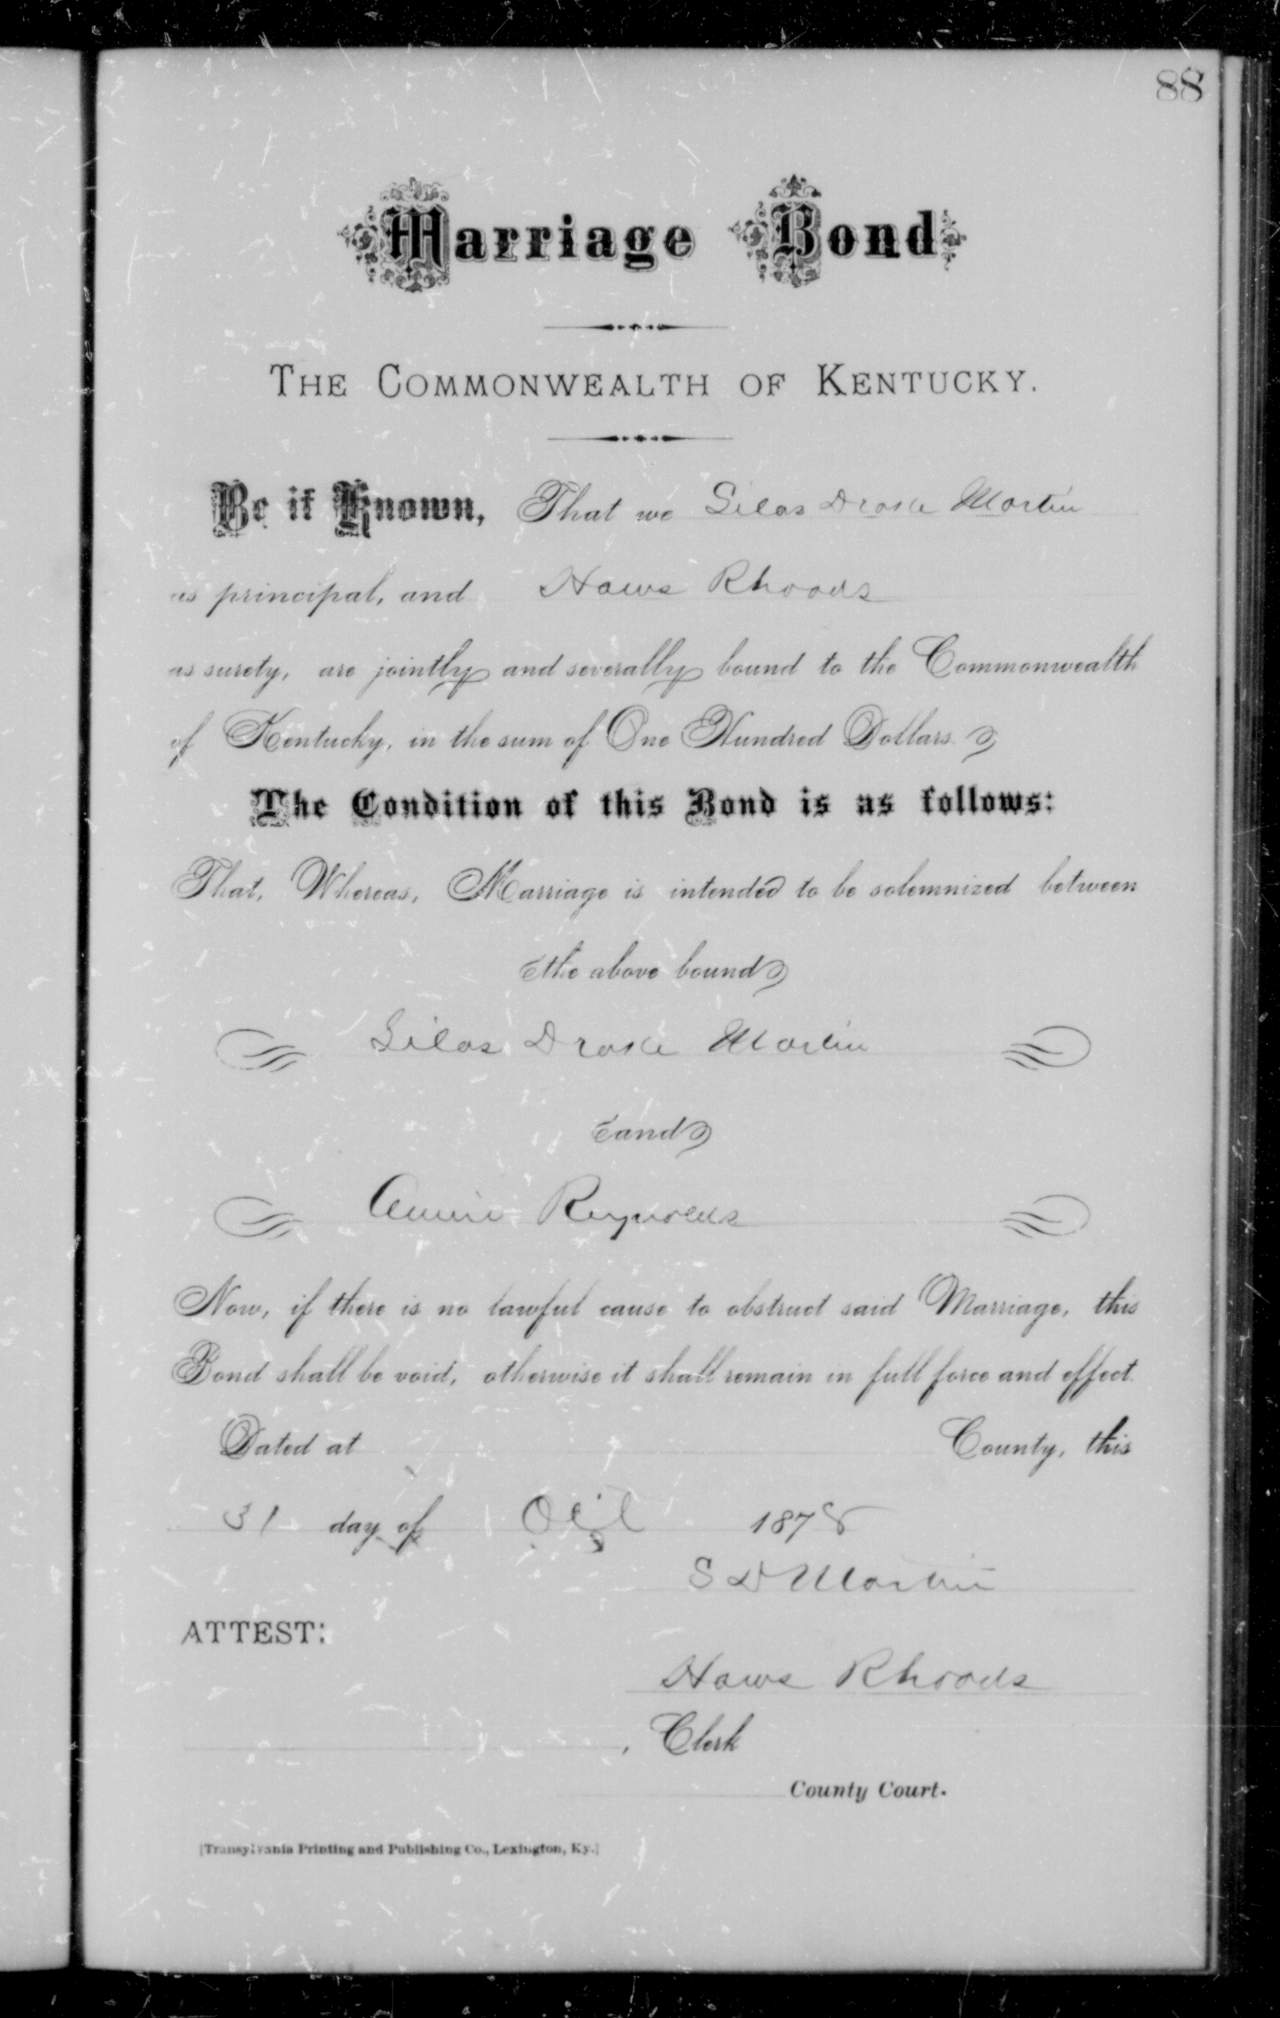 88
Marriage Bond
THE COMMONWEALTH OF KENTUCKY.
Be it Known, That we Silas Drake Martin
as principal, and Haws Rhoads
as surety, are jointly and severally bound to the Commonwealth
of Kentucky, in the sum of One Hundred Dollars.
The Condition of this Bond is as follows:
That, Whereas, Marriage is intended to be solemnized between
the above bound
Silas Drake Martin
and
Annie Reynolds
Now, if there is no lawful cause to obstruct said Marriage, this
Bond shall be void, otherwise it shall remain in full force and effect.
Dated at County, this
31 day of Oct 1878
S D Martin
ATTEST:
Haws Rhoads
, Clerk
County Court.
[Transylvania Printing and Publishing Co., Lexington, Ky.]